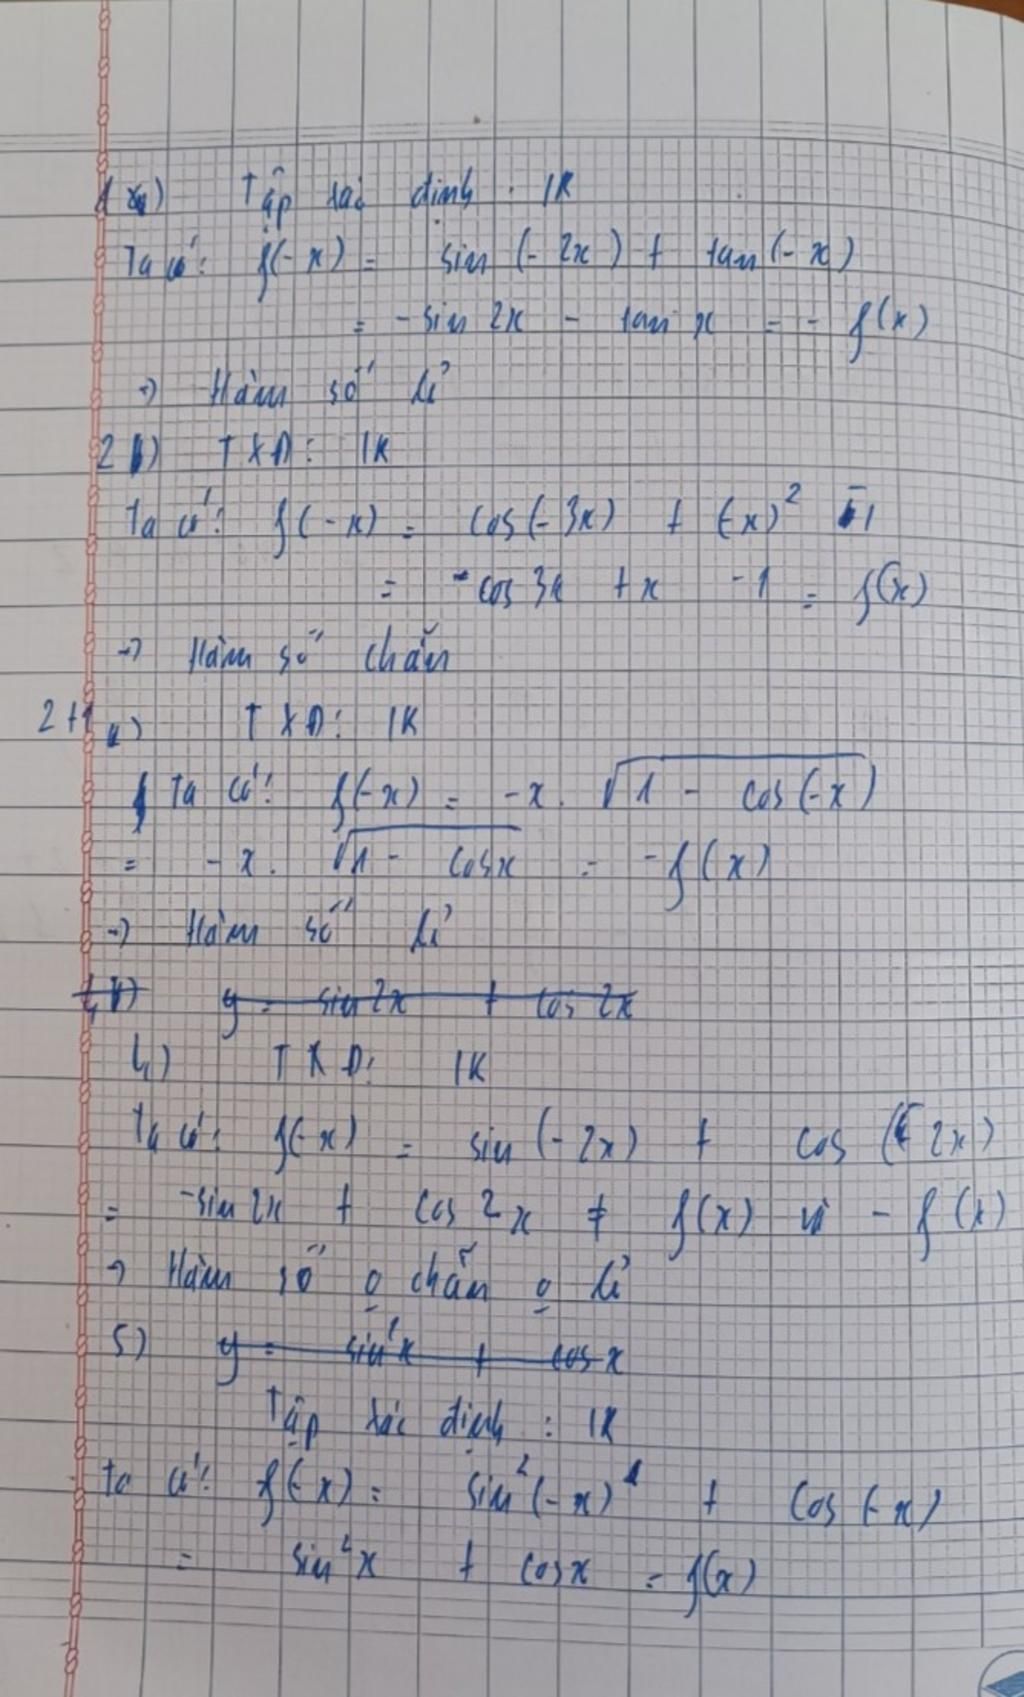 1) Tập xác định: IR
Ta có: f(-x) = sin(-2x) + tan(-x)
= -sin 2x - tan x = - f(x)
→ Hàm số lẻ
2) TXĐ: IR
Ta có: f(-x) = cos(-3x) + (-x)² - 1
= cos 3x + x - 1 = f(x)
→ Hàm số chẵn
TXĐ: IR
Ta có: f(-x) = -x. √(1 - cos(-x))
= -x. √(1 - cosx) = -f(x)
→ Hàm số lẻ
y = sin 2x + cos 2x
4) TXĐ: IR
Ta có: f(-x) = sin(-2x) + cos(-2x)
= -sin 2x + cos 2x ≠ f(x) và - f(x)
→ Hàm số o chẵn o lẻ
5) y = sin²x + cos x
Tập xác định: IR
Ta có: f(-x) = sin²(-x) + cos(-x)
= sin²x + cosx = f(x)